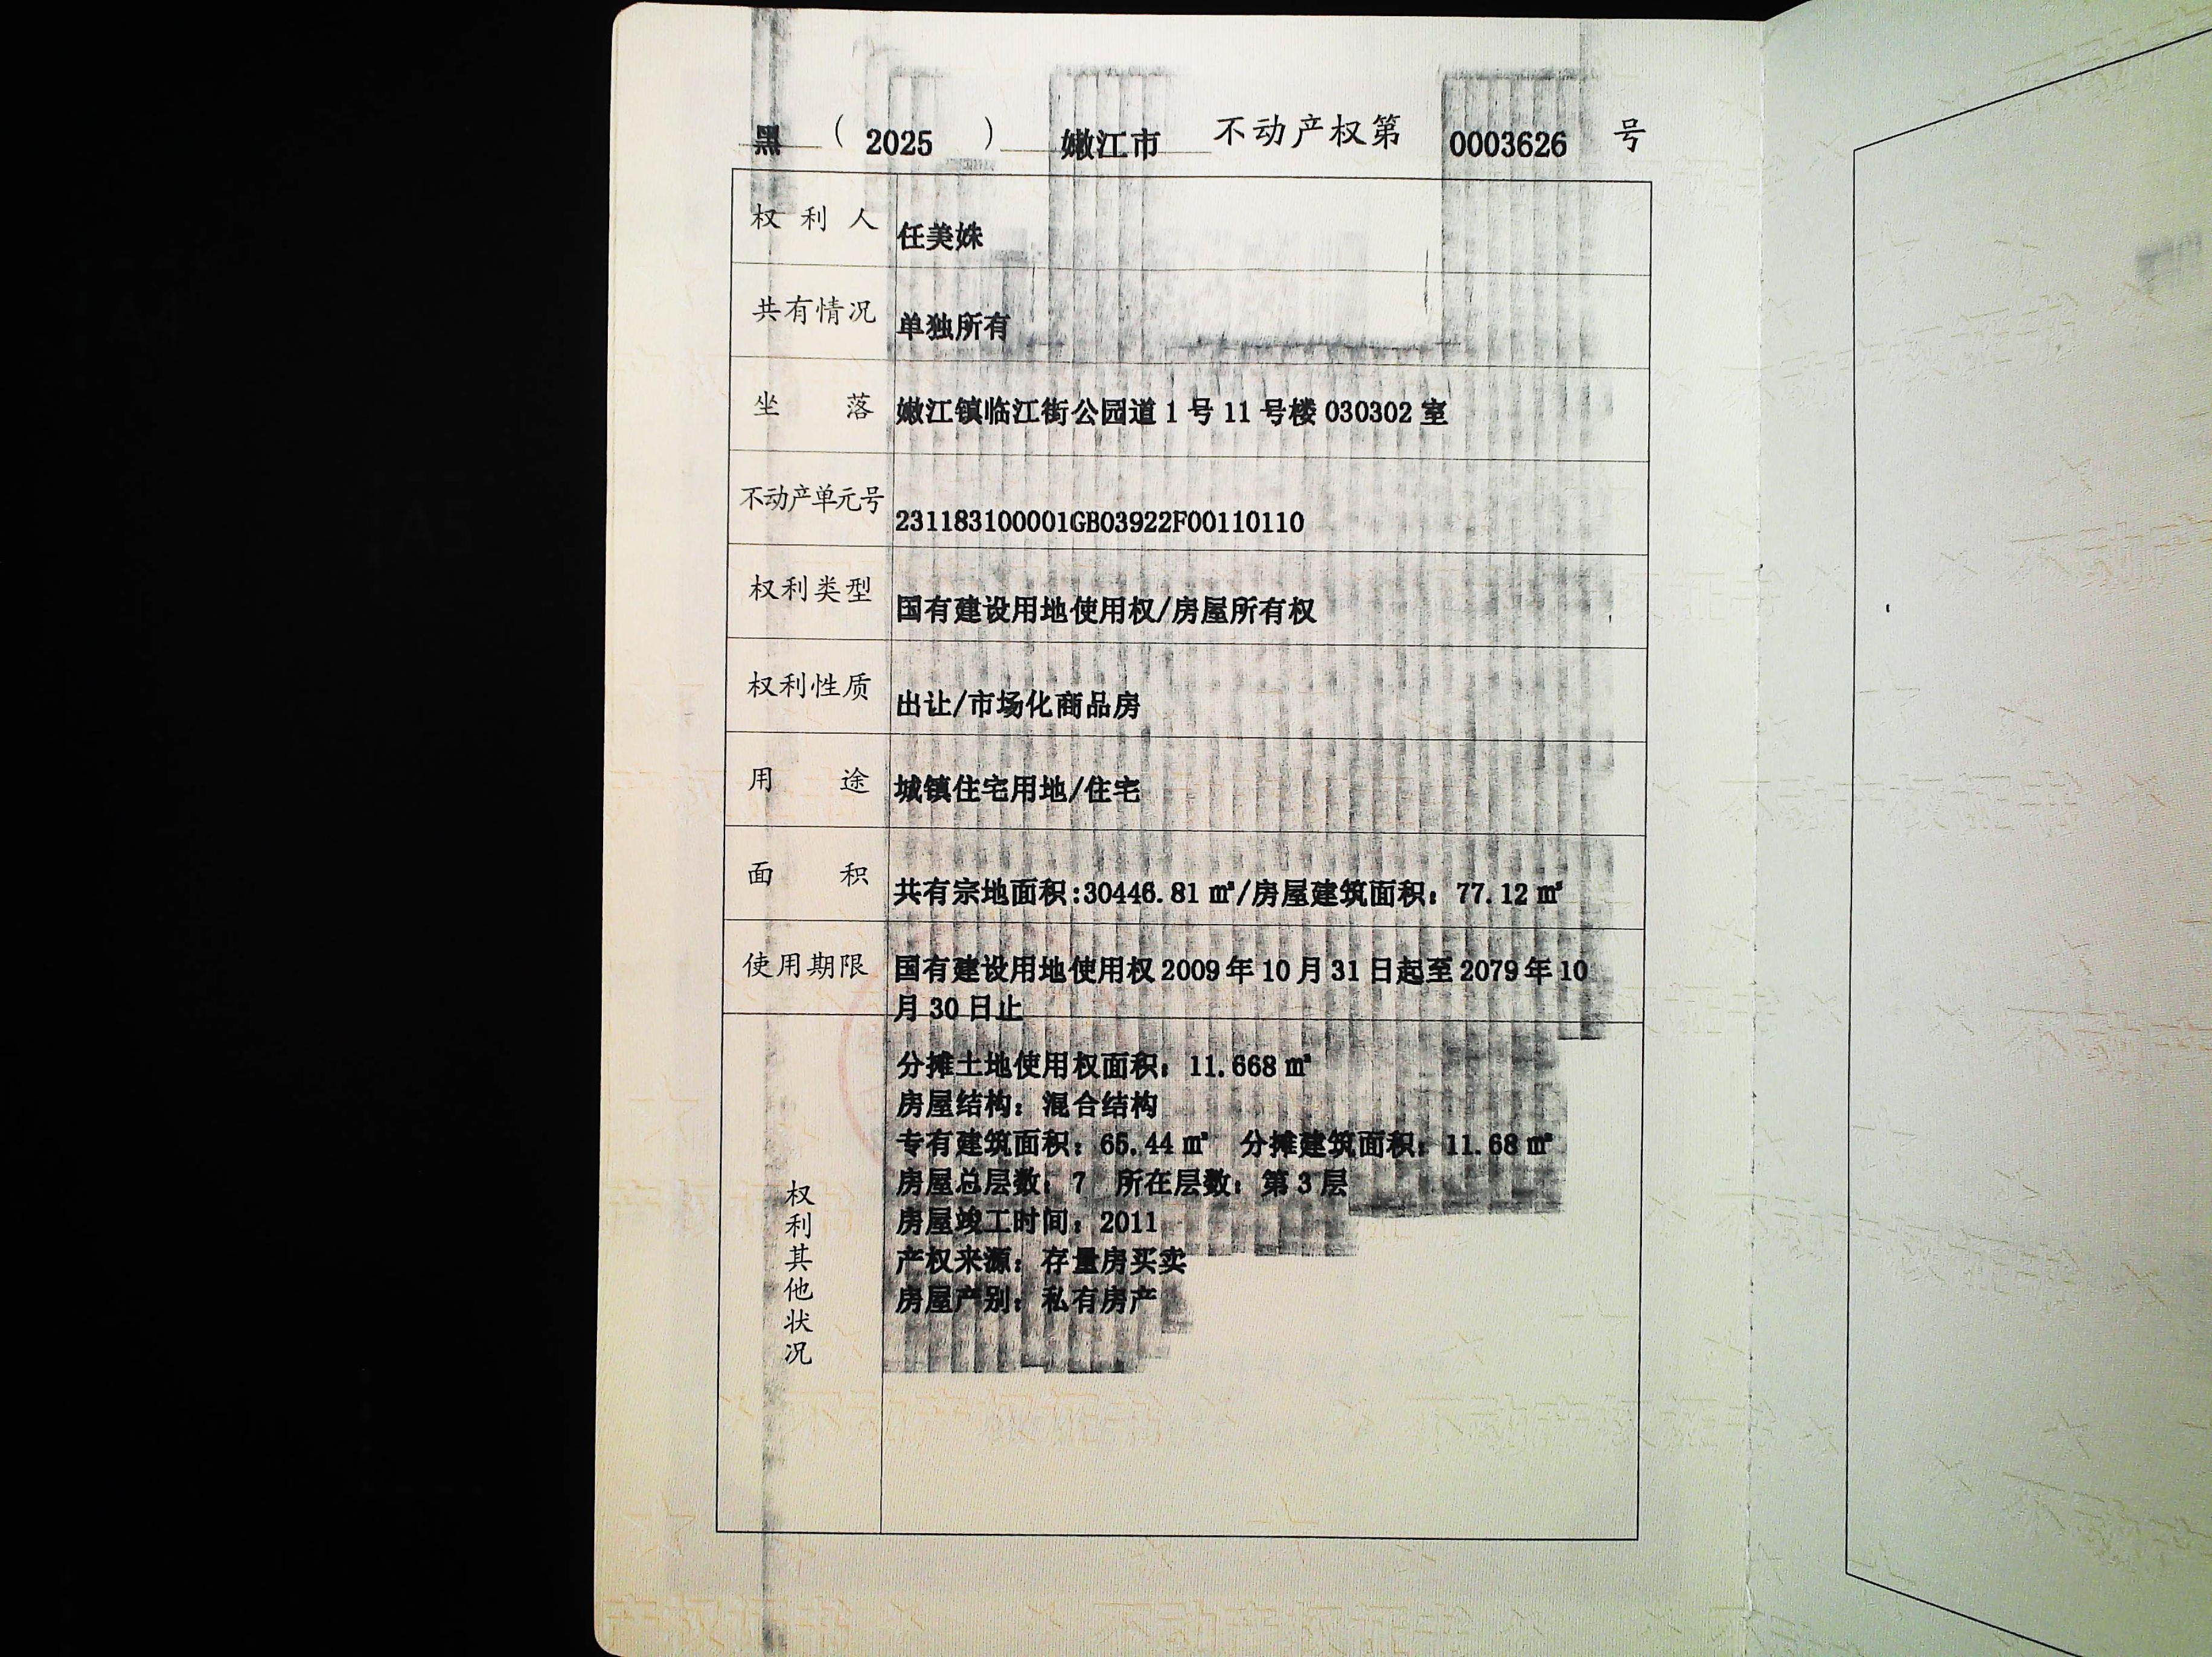 黑 （ 2025 ） 嫩江市 不动产权第 0003626 号
权利人 任美姝
共有情况 单独所有
坐落 嫩江镇临江街公园道1号11号楼030302室
不动产单元号 231183100001GB03922F00110110
权利类型 国有建设用地使用权/房屋所有权
权利性质 出让/市场化商品房
用途 城镇住宅用地/住宅
面积 共有宗地面积:30446.81㎡/房屋建筑面积：77.12㎡
使用期限 国有建设用地使用权2009年10月31日起至2079年10
月30日止
权利其他状况
分摊土地使用权面积：11.668㎡
房屋结构：混合结构
专有建筑面积：65.44㎡ 分摊建筑面积：11.68㎡
房屋总层数：7 所在层数：第3层
房屋竣工时间：2011
产权来源：存量房买卖
房屋产别：私有房产